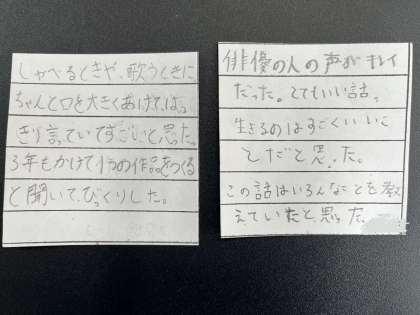 しゃべるときや、歌うときに
ちゃんと口を大きくあけて、はっ
きり言っていてすごいと思った。
3年もかけて1つの作品をつくる
と聞いて、びっくりした。
俳優の人の声がキレイ
だった。とてもいい話。
生きるのはすごくいいこ
とだと思った。
この話はいろんなことを考
えていたと思った。